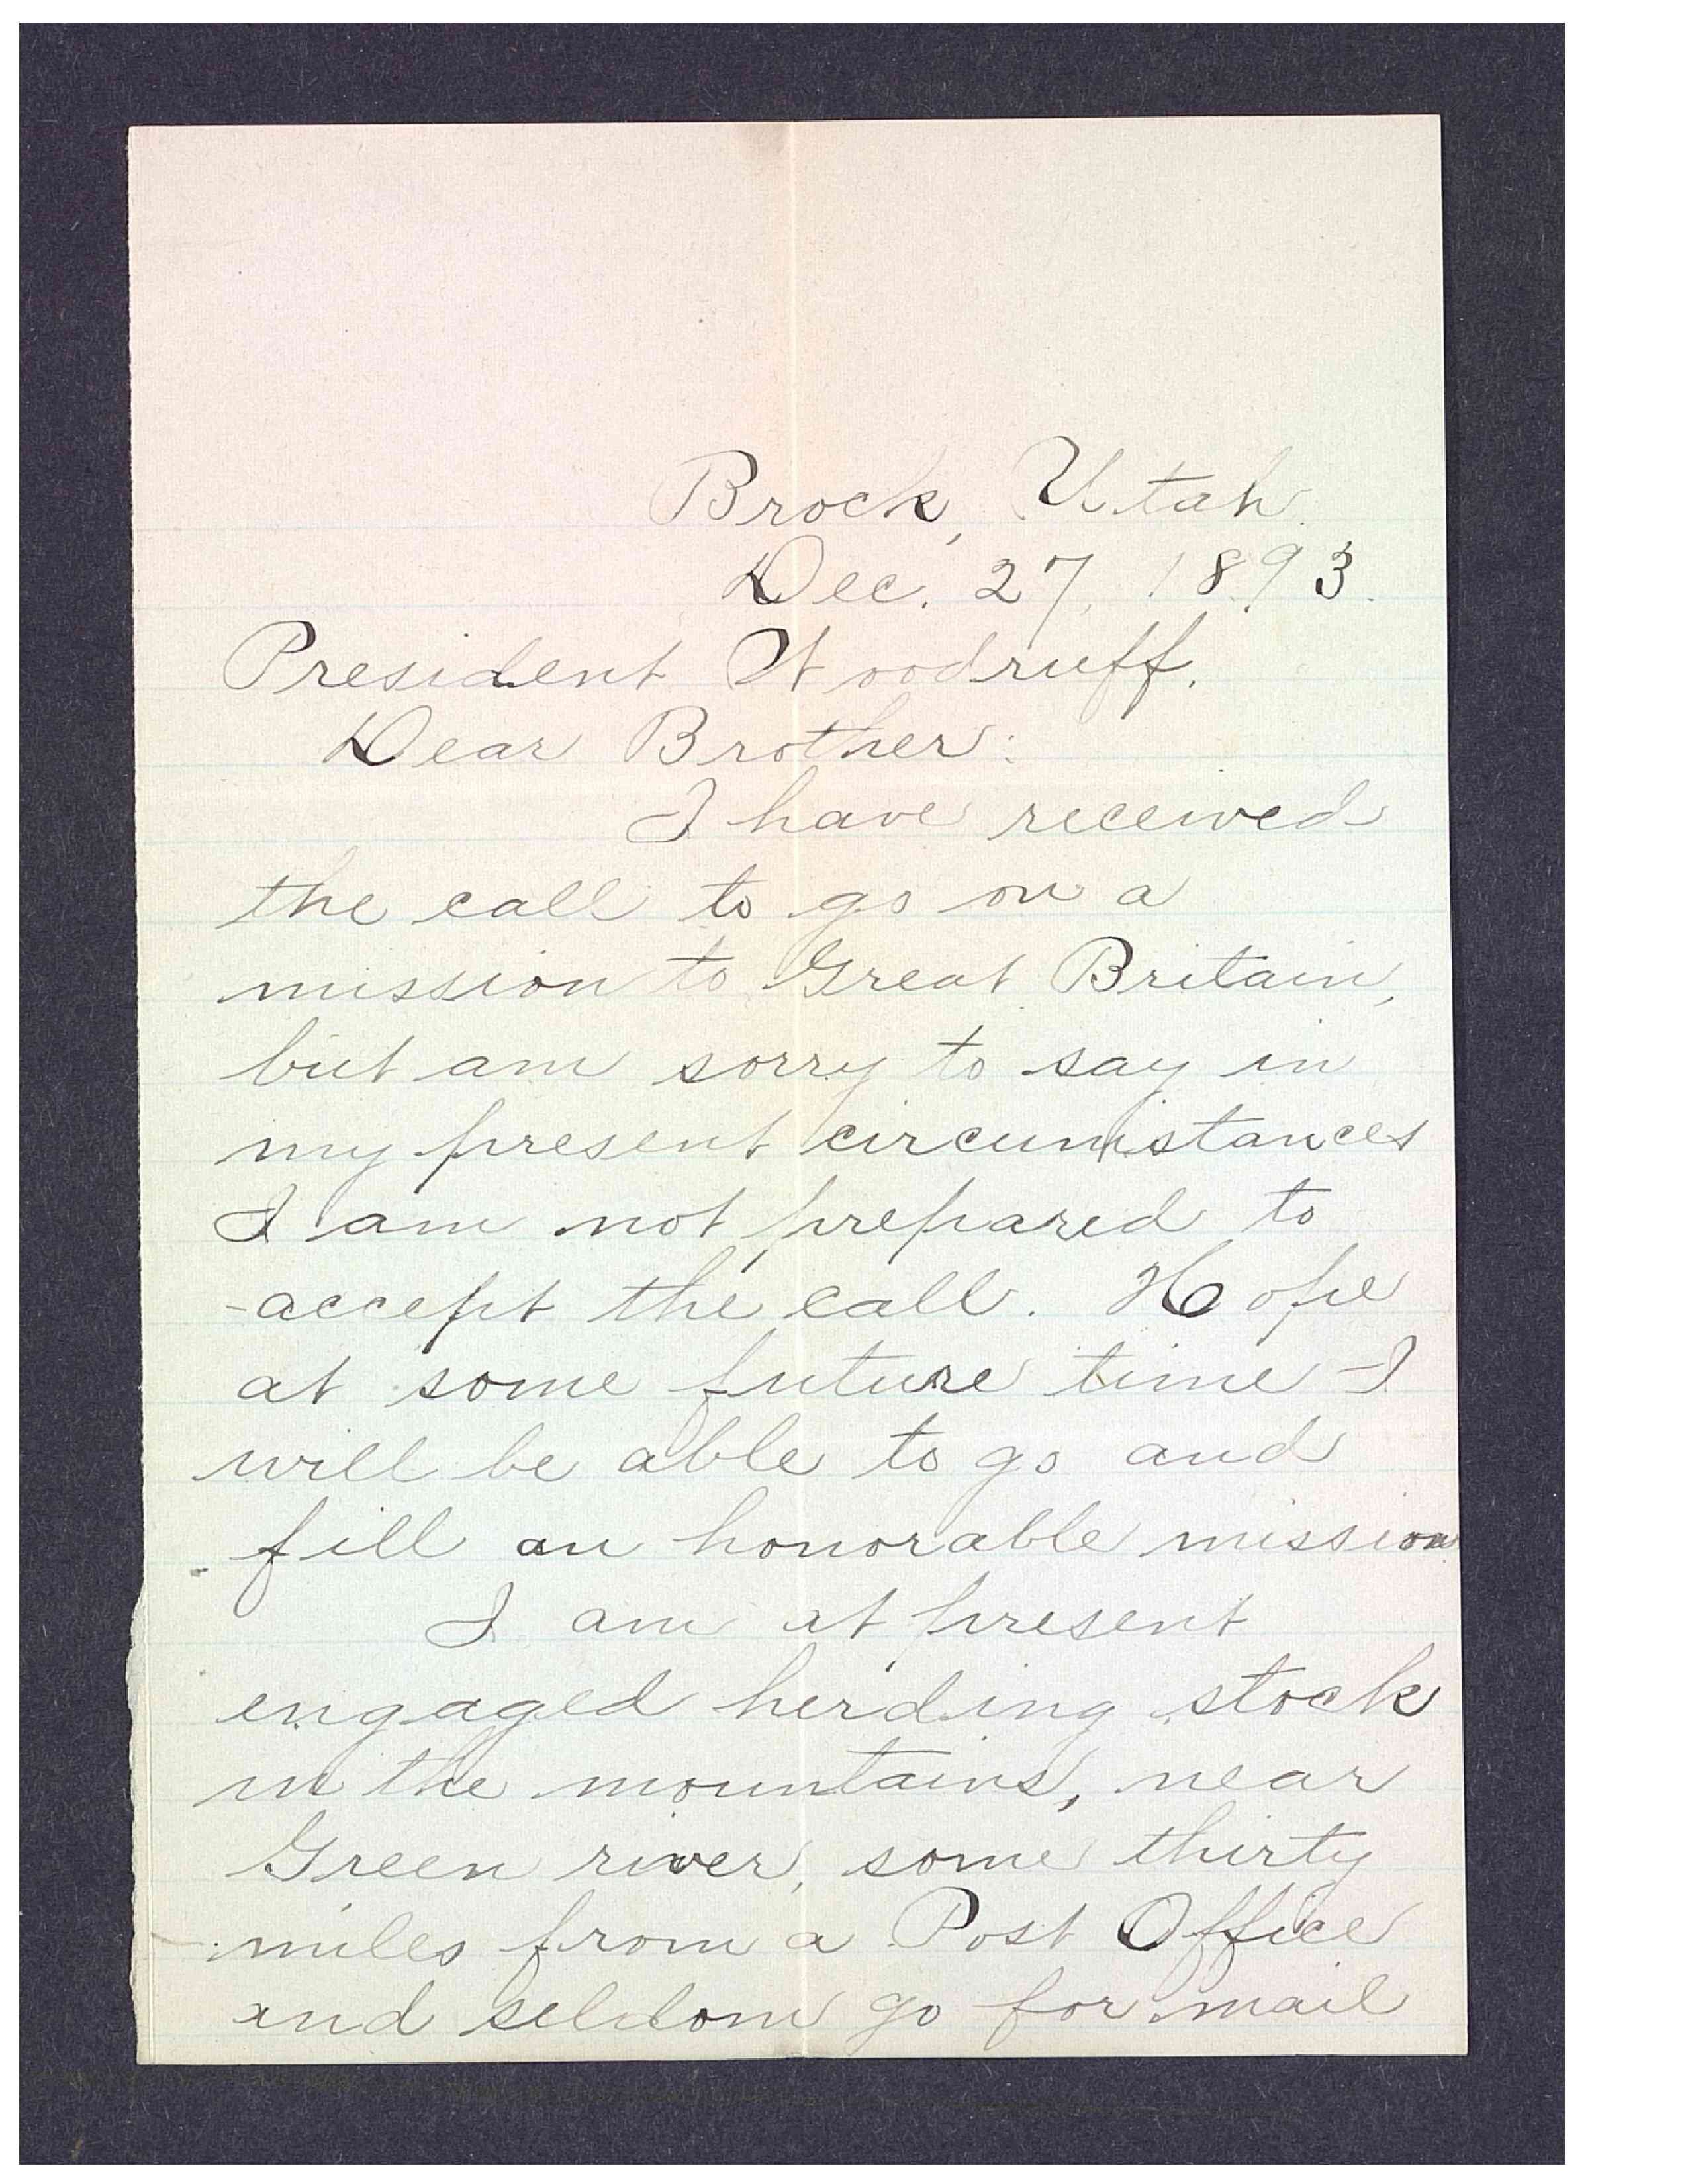 Brock, Utah.
Dec. 27, 1893.
President Woodruff.
Dear Brother:
I have received
the call to go on a
mission to Great Britain,
but am sorry to say in
my present circumstances
I am not prepared to
accept the call. Hope
at some future time I
will be able to go and
fill an honorable mission
I am at present
engaged herding stock
in the mountains, near
Green river, some thirty
miles from a Post Office
and seldom go for mail